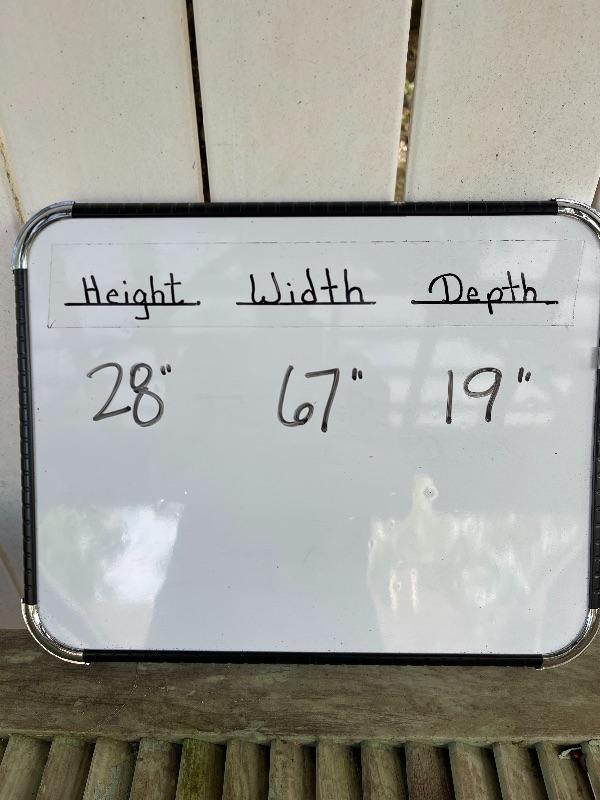 Height Width Depth
28" 67" 19"